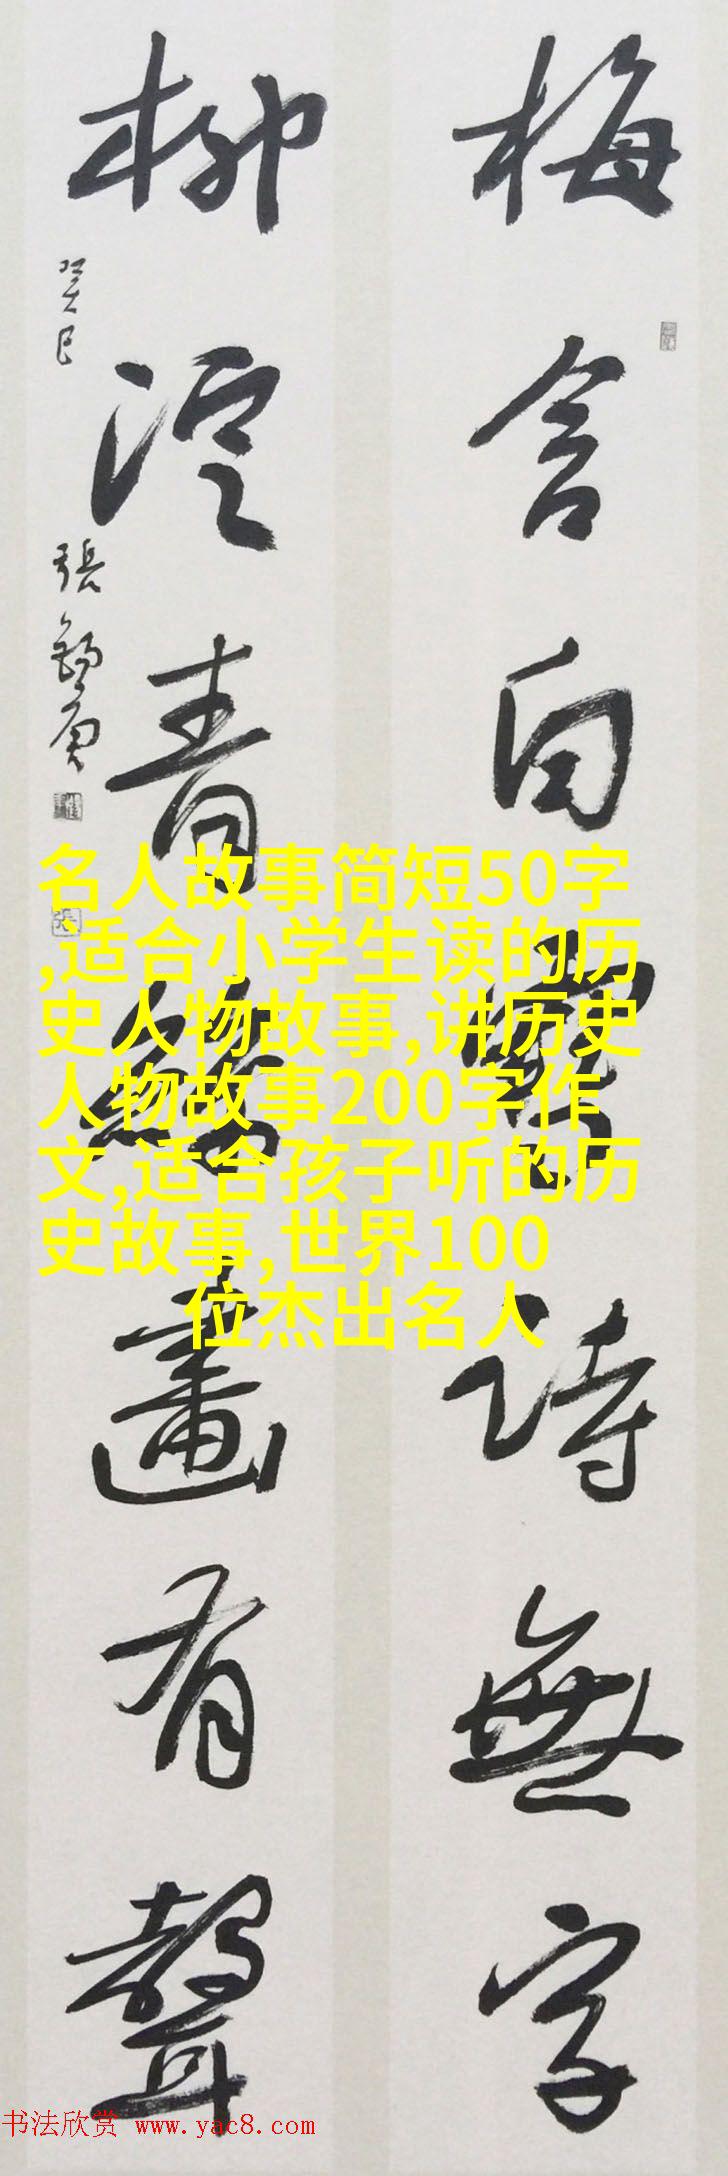 梅含白雪詩無字
柳浥青絲畫有聲
癸巳
張錫庚
名人故事简短50字
,适合小学生读的历
史人物故事,讲历史
人物故事200字作
文,适合孩子听的历
史故事,世界100
位杰出名人
书法欣赏 www.yac8.com